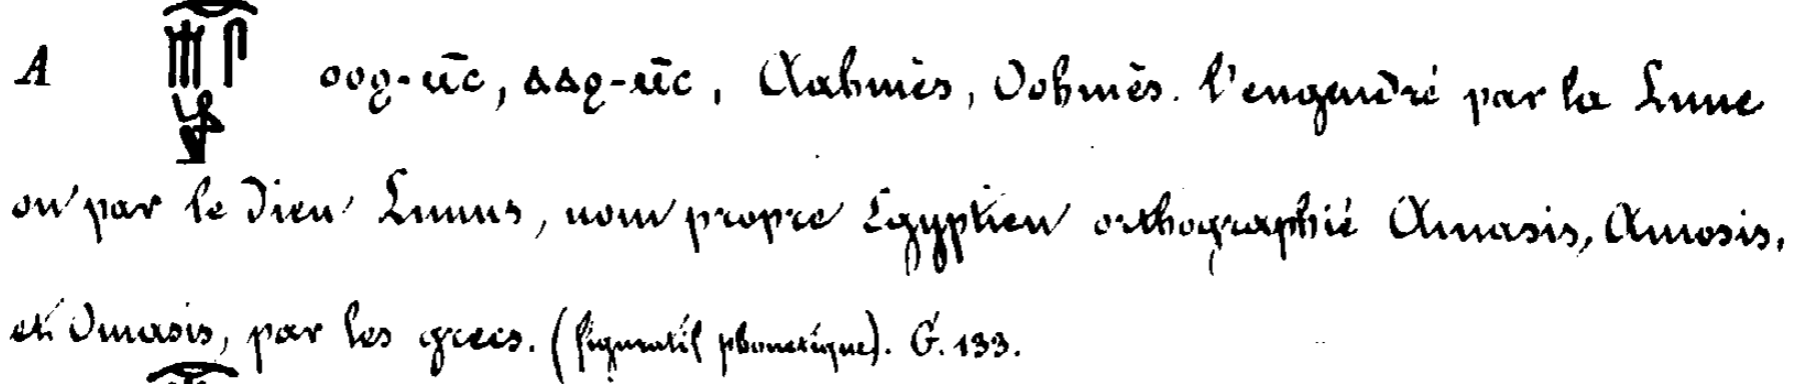 A ⲟⲟϩ-ⲙ̄ⲥ, ⲁⲁϩ-ⲙ̄ⲥ, Aahmès, Oohmès. l'engendré par la Lune
ou par le Dieu Lunus, nom propre Egyptien orthographié Amasis, Amosis,
et Omasis, par les grecs. (figuratif phonétique). G. 133.